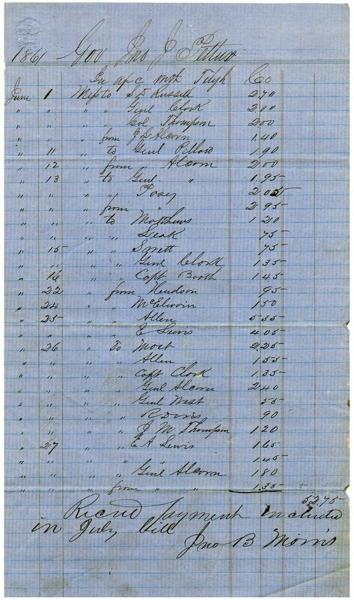 1861 Gov Jno J Pettus
To a/c M & O Telgh Co
June 1 Messto S D Russell 270
" " " Genl Clark 200
" " " Col Thompson 200
" " from J L Alcorn 140
" 11 " to Genl Pillow 190
" 12 " from Alcorn 200
" 13 " to Genl " 195
" " " " Posey 205
" " " from " 295
" " " to Matthews 120
" " " " Deak 75
" 15 " " Smett 75
" " " " Genl Clark 135
" 16 " " Capt Booth 145
" 22 " from Hendson 95
" 24 " " McElwin 150
" 25 " " Allen 555
" " " " E Lewis 405
" 26 " To Mott 225
" " " " Allen 155
" " " " Capt Clark 135
" " " " Genl Alcorn 240
" " " " Genl West 55
" " " " 90
" " " " J M Thompson 120
" 27 " " E A Lewis 165
" " " " " 145
" " " " Genl Alcorn 180
" " " from " " 155
5275
Recved payment included
in July bill
Jno B Morris